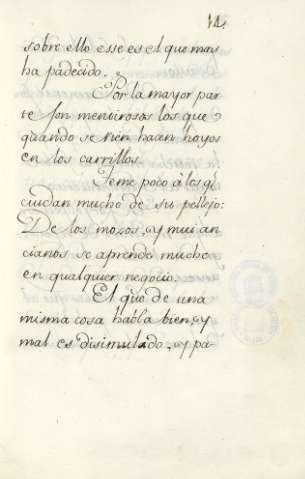 14.
sobre ello esse es el que mas
ha padecido.
Por la mayor par
te son mentirosos los que
quando se rien hacen hoyos
en los carrillos.
Teme poco à los q̃
cuidan mucho de su pellejo:
De los mozos, y mui an
cianos se aprende mucho
en qualquier negocio.
El que de una
misma cosa habla bien, y
mal es disimulado, y pa-